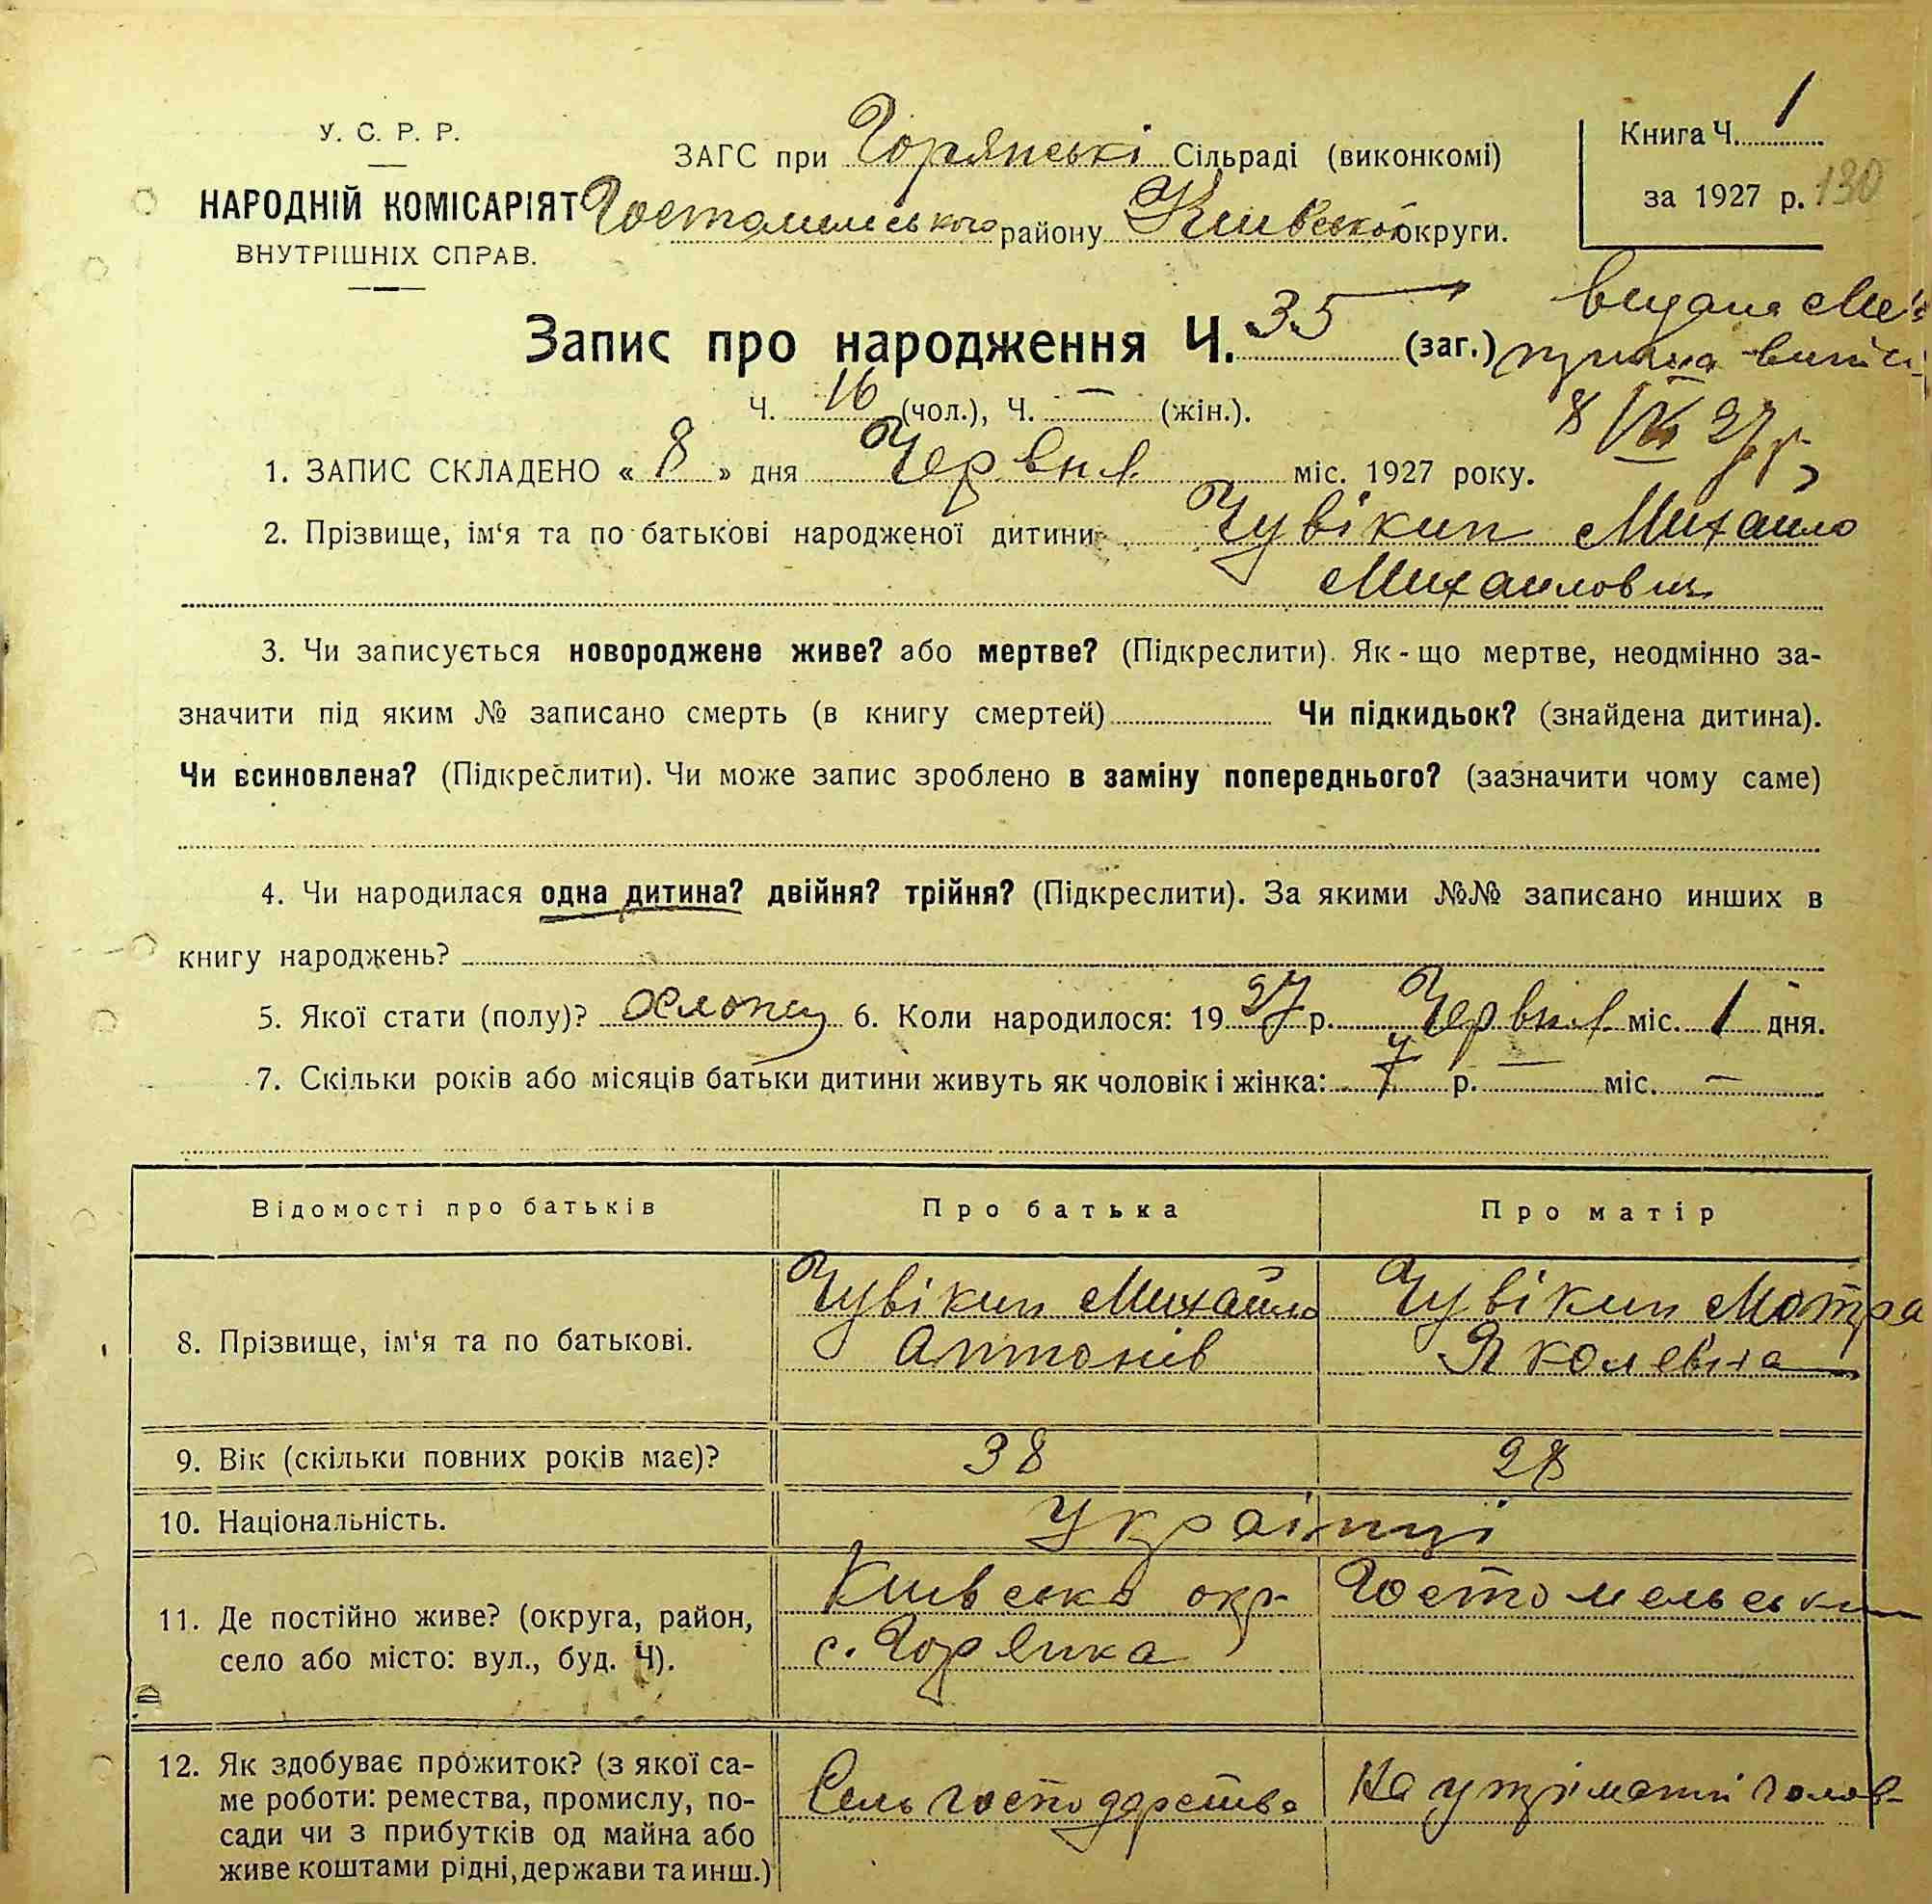 У. С. Р. Р.
НАРОДНІЙ КОМІСАРІЯТ
ВНУТРІШНІХ СПРАВ.
ЗАГС при Горянські Сільраді (виконкомі)
Гостомельського району Київської округи.
Книга Ч. 1
за 1927 р. 130
Запис про народження Ч. 35 (заг.)
видана
8/VI 27 р
Ч. 16 (чол.), Ч. — (жін.).
1. ЗАПИС СКЛАДЕНО « 8 » дня Червня міс. 1927 року.
2. Прізвище, ім‘я та по батькові народженої дитини Чувікин Михайло
Михаилович
3. Чи записується новороджене живе? або мертве? (Підкреслити). Як-що мертве, неодмінно за-
значити під яким № записано смерть (в книгу смертей) Чи підкидьок? (знайдена дитина).
Чи всиновлена? (Підкреслити). Чи може запис зроблено в заміну попереднього? (зазначити чому саме)
4. Чи народилася одна дитина? двійня? трійня? (Підкреслити). За якими №№ записано инших в
книгу народжень?
5. Якої стати (полу)? Хлопец 6. Коли народилося: 1927 р. Червня міс. 1 дня.
7. Скільки років або місяців батьки дитини живуть як чоловік і жінка: 7 р. — міс. —
Відомості про батьків Про батька Про матір
8. Прізвище, ім‘я та по батькові.
Чувікин Михайло
Антонів
Чувікин Мотра
Яколевна
9. Вік (скільки повних років має)? 38 28
10. Національність. Українці
11. Де постійно живе? (округа, район,
село або місто: вул., буд. Ч).
Київсько окр Гостомельськи
с. Горянка
12. Як здобуває прожиток? (з якої са-
ме роботи: ремества, промислу, по-
сади чи з прибутків од майна або
живе коштами рідні, держави та инш.)
Сель господарство
На утріманні голов